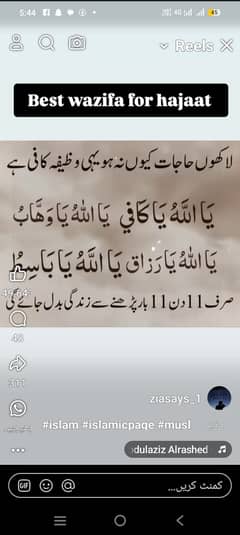 5:44
4G 5G 45
Reels
Best wazifa for hajaat
لاکھوں حاجات کیوں نہ ہو یہی وظیفہ کافی ہے
يَا اللَّهُ يَا كَافِي يَا اللَّهُ يَا وَهَّابُ
يَا اللَّهُ يَا رَزاق يَا اللَّهُ يَا بَاسِطُ
صرف 11 دن 11 بار پڑھنے سے زندگی بدل جائے گی
311
ziasays_1
#islam #islamicpage #musl
dulaziz Alrashed
کمنٹ کریں...
GIF